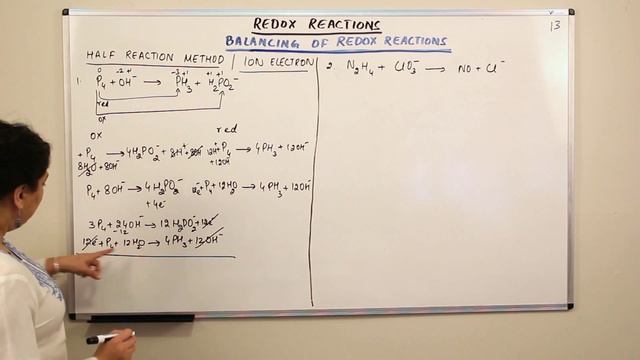 REDOX REACTIONS
13
BALANCING OF REDOX REACTIONS
HALF REACTION METHOD / ION ELECTRON
0 -2 +1 -3 +1 +1 +1
1. P₄ + OH⁻ → PH₃ + H₂PO₂⁻
red
ox
ox red
+ P₄ → 4H₂PO₂⁻ + 8H⁺ + 8OH⁻
8H₂O + 8OH⁻
12H⁺ + P₄ → 4PH₃ + 12OH⁻
+12OH⁻
P₄ + 8OH⁻ → 4H₂PO₂⁻
+ 4e⁻
12e⁻ + P₄ + 12H₂O → 4PH₃ + 12OH⁻
3P₄ + 24OH⁻ → 12H₂PO₂⁻ + 12e⁻
-12
12e⁻ + P₄ + 12H₂O → 4PH₃ + 12OH⁻
2. N₂H₄ + ClO₃⁻ → NO + Cl⁻